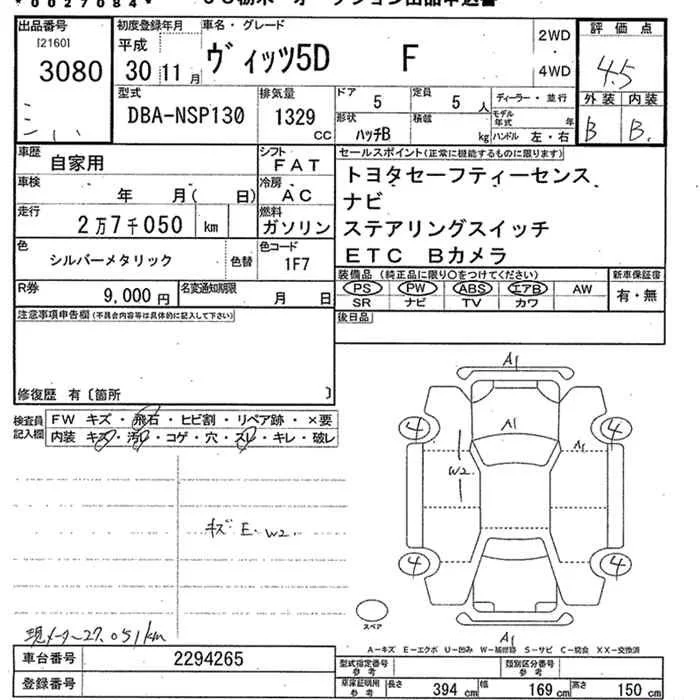 *0027084*
出品番号 [2160] 3080
初度登録年月 平成 30 11月
車名・グレード ヴィッツ5D F
2WD ・ 4WD
評価点 4.5
外装 内装
B B.
型式 DBA-NSP130
排気量 1329 cc
ドア 5 定員 5 人
形状 ハッチB 積載 kg
ディーラー・並行
モデル年式 年
ハンドル 左・右
車歴 自家用
シフト FAT
車検 年 月( 日)
冷房 AC
走行 2万7千050 km
燃料 ガソリン
色 シルバーメタリック 色替
色コード 1F7
R券 9,000円
名変通知期限 月 日
セールスポイント(正常に機能するものに限ります)
トヨタセーフティーセンス
ナビ
ステアリングスイッチ
ETC Bカメラ
装備品 (純正品に限り○をつけてください) 新車保証書
PS PW ABS エアB AW 有・無
SR ナビ TV カワ
後日品
注意事項申告欄(不具合内容等は具体的に記入して下さい)
修復歴 有〔箇所 〕
検査員記入欄
FW キズ・飛石・ヒビ割・リペア跡・×要
内装 キズ・汚レ・コゲ・穴・スレ・キレ・破レ
キズ E. W2.
現メーター27,051km
A1
A1
A1
W2
4 4
4 4
スペア
A1
A-キズ E-エクボ U-凹み W-補修跡 S-サビ C-腐食 XX-交換済
車台番号 2294265
登録番号
型式指定番号 参考
類別区分番号 参考
車庫証明用 参考 長さ 394 cm 幅 169 cm 高さ 150 cm